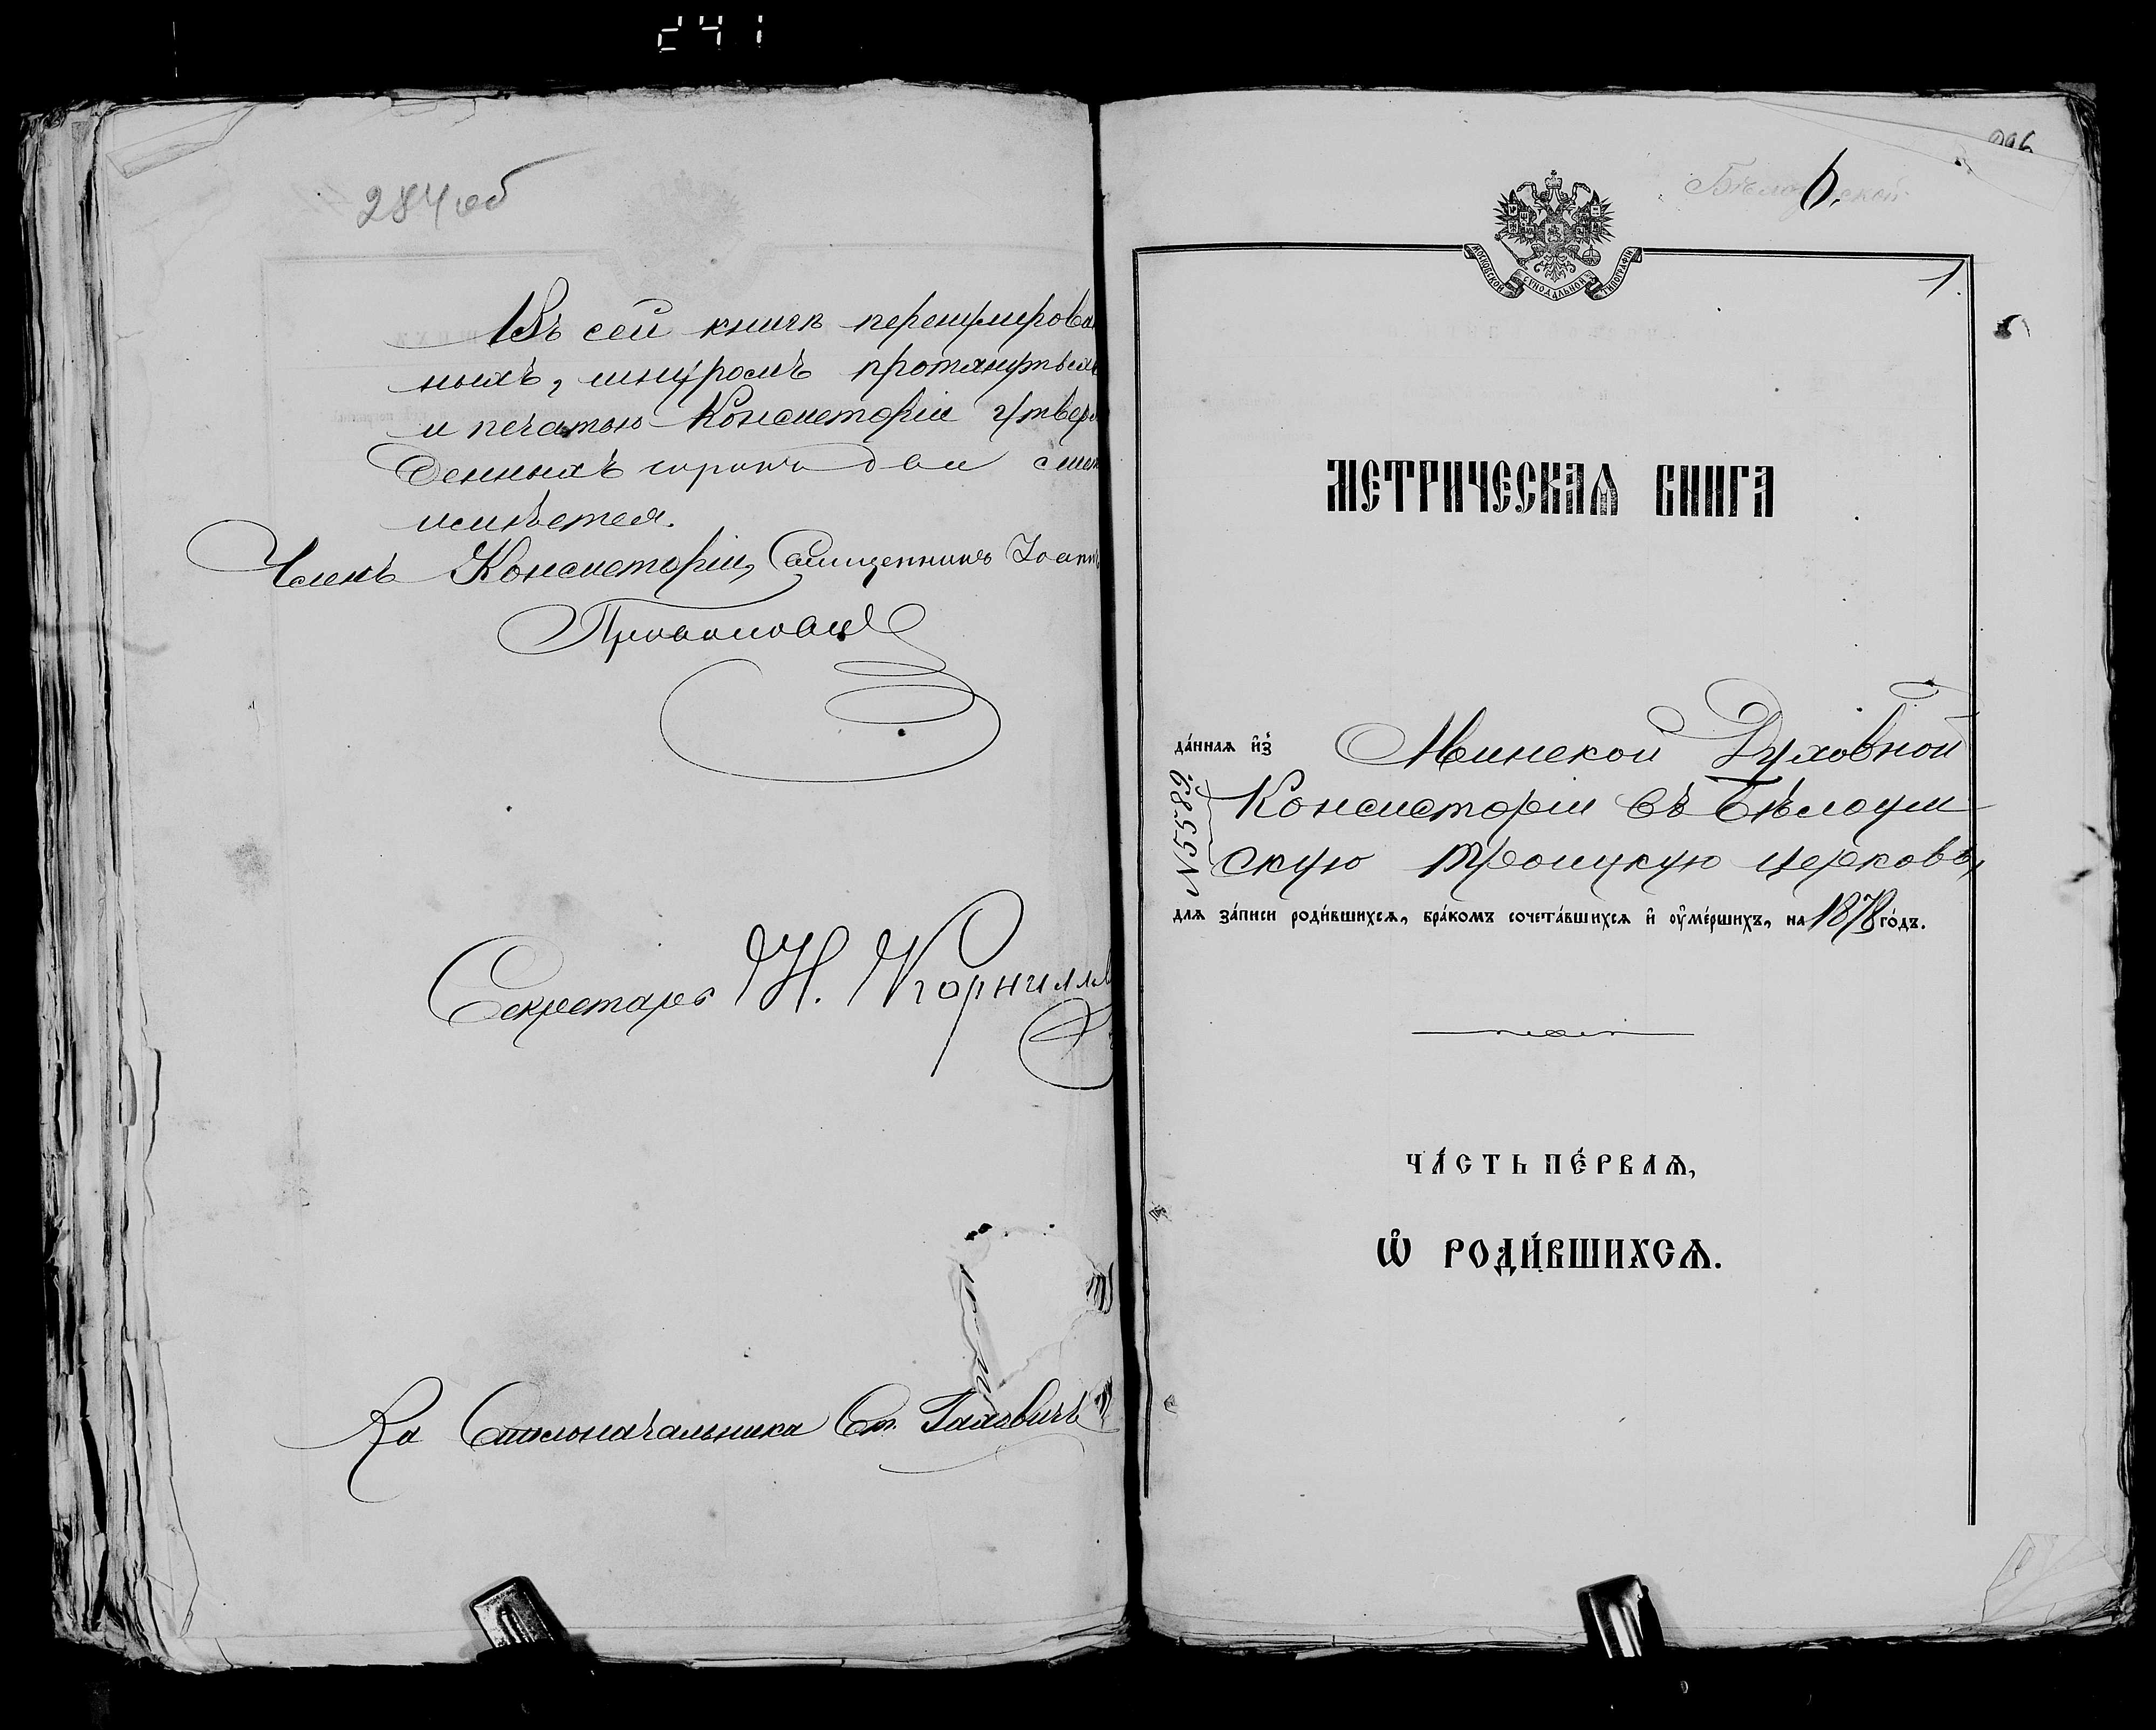 284 об
Въ сей книгѣ перенумерован
ныхъ, шнуромъ протянутыхъ
и печатью Консисторіи утверж
денныхъ сорокъ два
имѣется.
Членъ Консисторіи, Священникъ Іоаннъ
Секретарь Н. Корнилов
За Столоначальника Ст.
6.
МОСКОВСКОЙ СѴНОДАЛЬНОЙ ТИПОГРАФІИ
1.
МЕТРИЧЕСКАѦ КНИГА
да́ннаѧ и҆з̾ Минской Духовной
Консисторіи въ Бѣлоуш
скую Троицкую церковь,
№ 5589
длѧ за́писи роди́вшихсѧ, бра́комъ сочета́вшихсѧ и҆ ᲂу҆ме́ршихъ, на 1878 го́дъ.
ЧА́СТЬ ПЕ́РВАѦ,
Ѽ РОДИ́ВШИХСѦ.